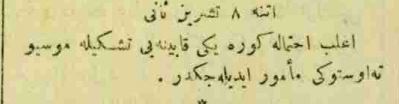 اتنه ٨ تشرین ثانی
اغلب احتماله كوره یكی قابینه‌یی تشكیله موسیو
ته‌اوستوكی مأمور ایدیله‌جكدر .